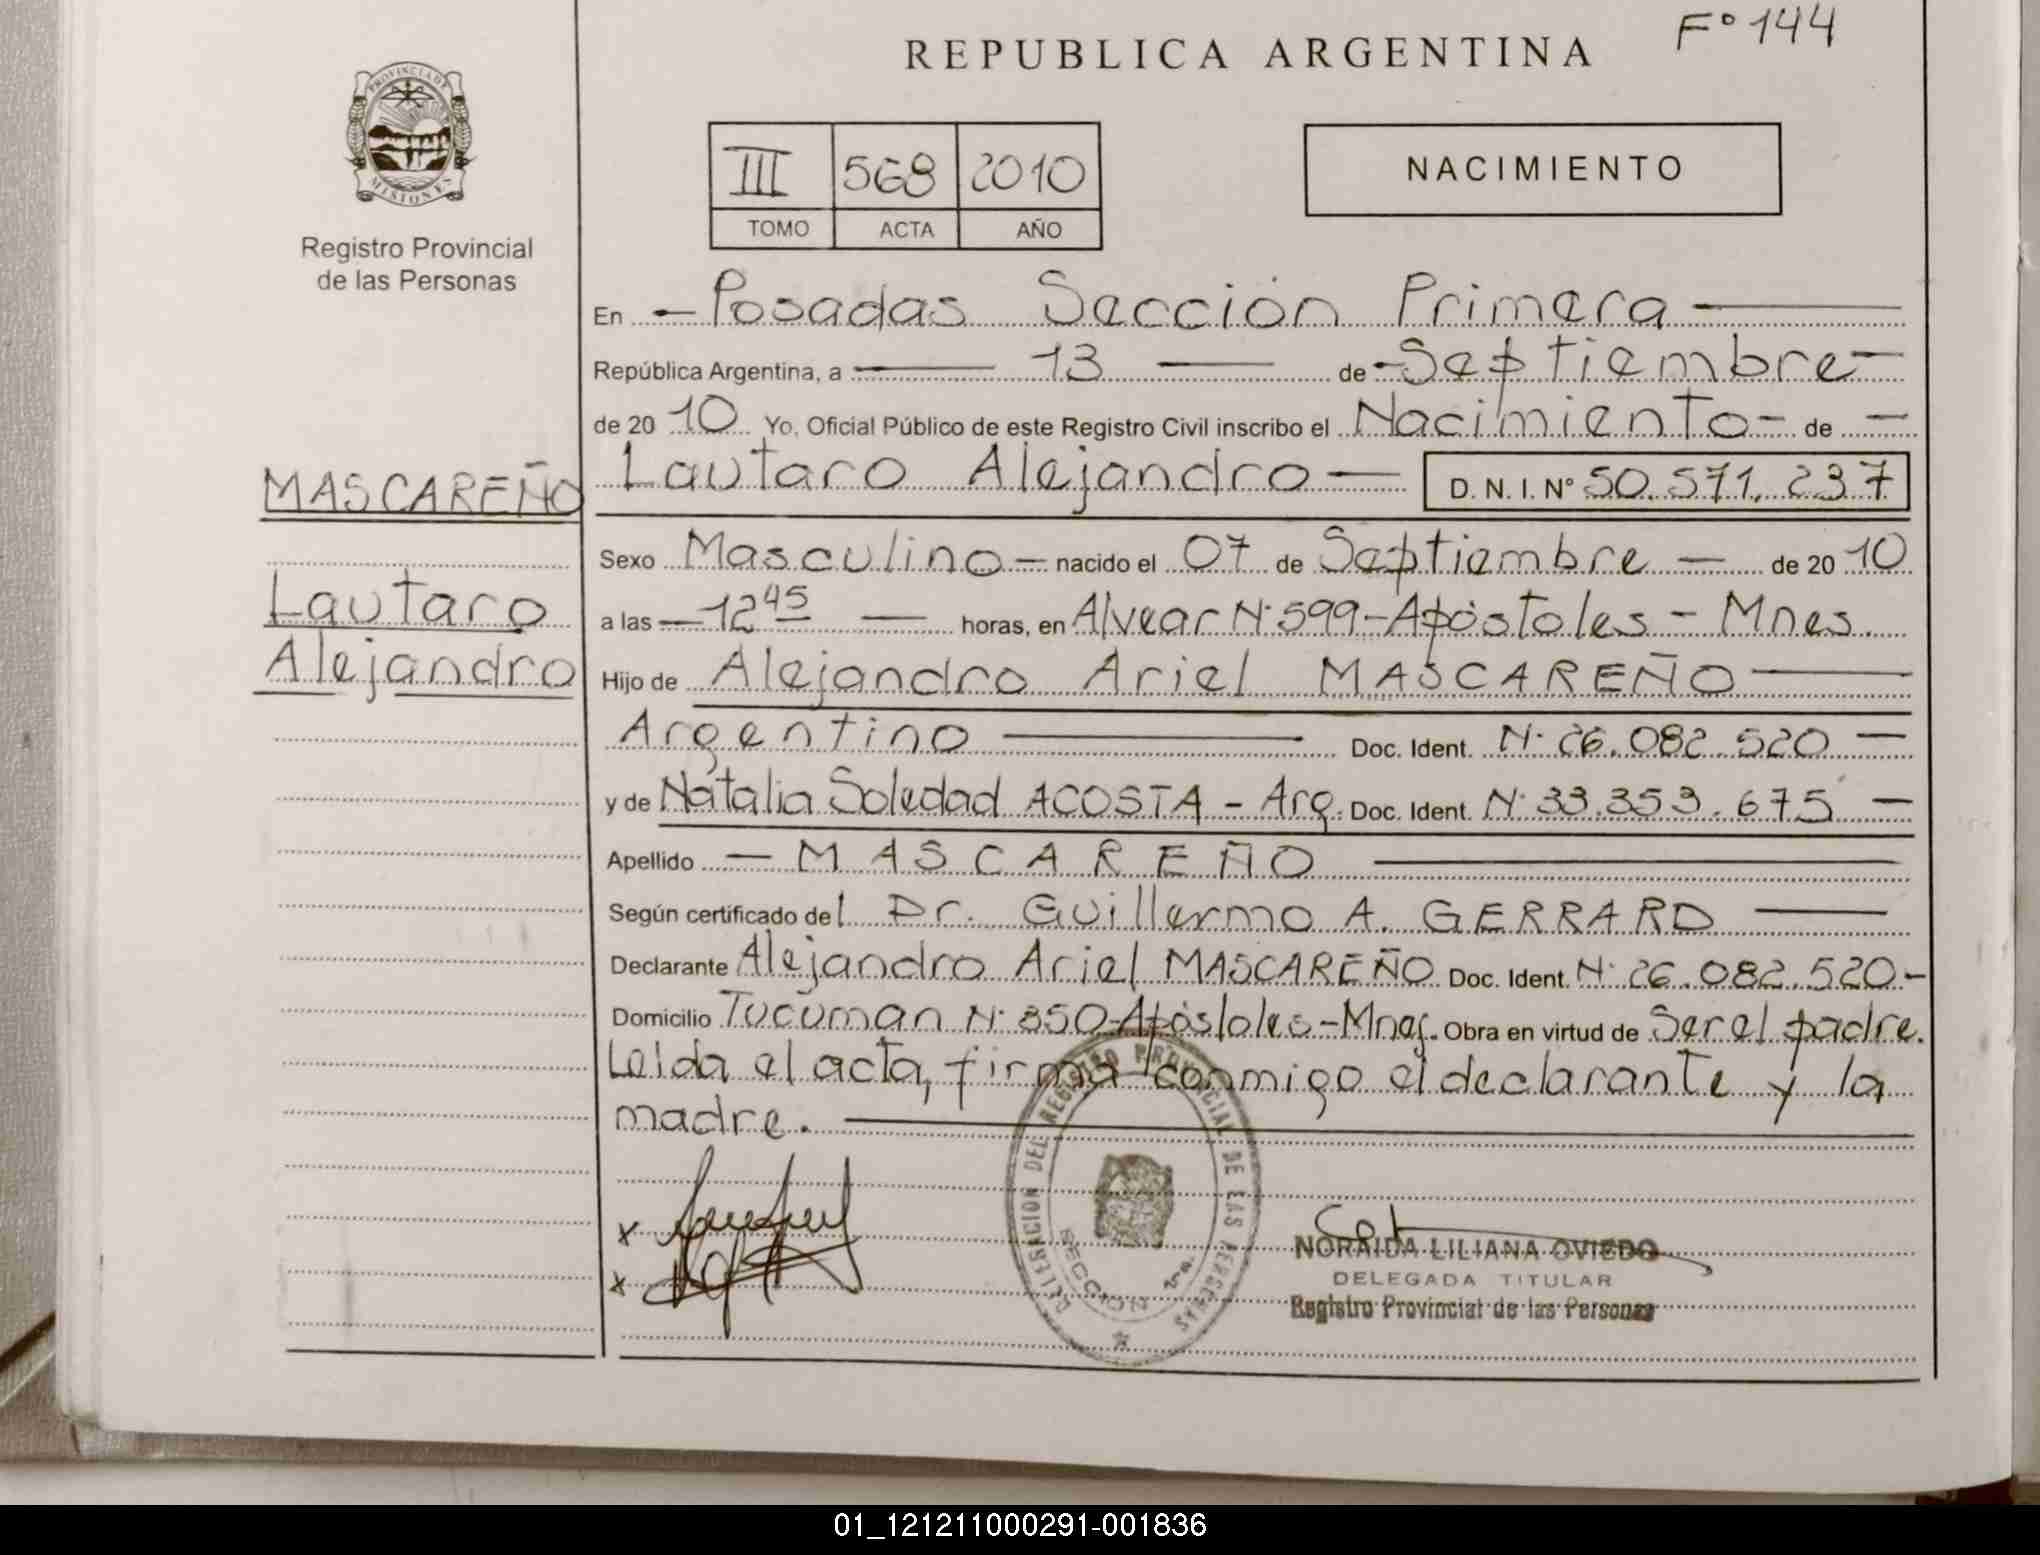 F° 144
REPUBLICA ARGENTINA
PROVINCIA DE
MISIONES
Registro Provincial
de las Personas
III 568 2010
TOMO ACTA AÑO
NACIMIENTO
En Posadas Sección Primera
República Argentina, a 13 de Septiembre
de 20 10 Yo, Oficial Público de este Registro Civil inscribo el Nacimiento de
MASCAREÑO
Lautaro Alejandro D. N. I. N° 50.571.237
Sexo Masculino nacido el 07 de Septiembre de 20 10
Lautaro
a las 12 45 horas, en Alvear N° 599-Apóstoles - Mnes.
Alejandro
Hijo de Alejandro Ariel MASCAREÑO
Argentino Doc. Ident. N° 26.082.520
y de Natalia Soledad ACOSTA - Arg. Doc. Ident. N° 33.353.675
Apellido MASCAREÑO
Según certificado del Dr. Guillermo A. GERRARD
Declarante Alejandro Ariel MASCAREÑO Doc. Ident. N° 26.082.520-
Domicilio Tucuman N° 350-Apóstoles-Mnes. Obra en virtud de Ser el padre.
Leída el acta, firma conmigo el declarante y la
madre.
DELEGACION DEL REGISTRO PROVINCIAL DE LAS PERSONAS
SECCION 1ra.
NORAIDA LILIANA OVIEDO
DELEGADA TITULAR
Registro Provincial de las Personas
01_121211000291-001836